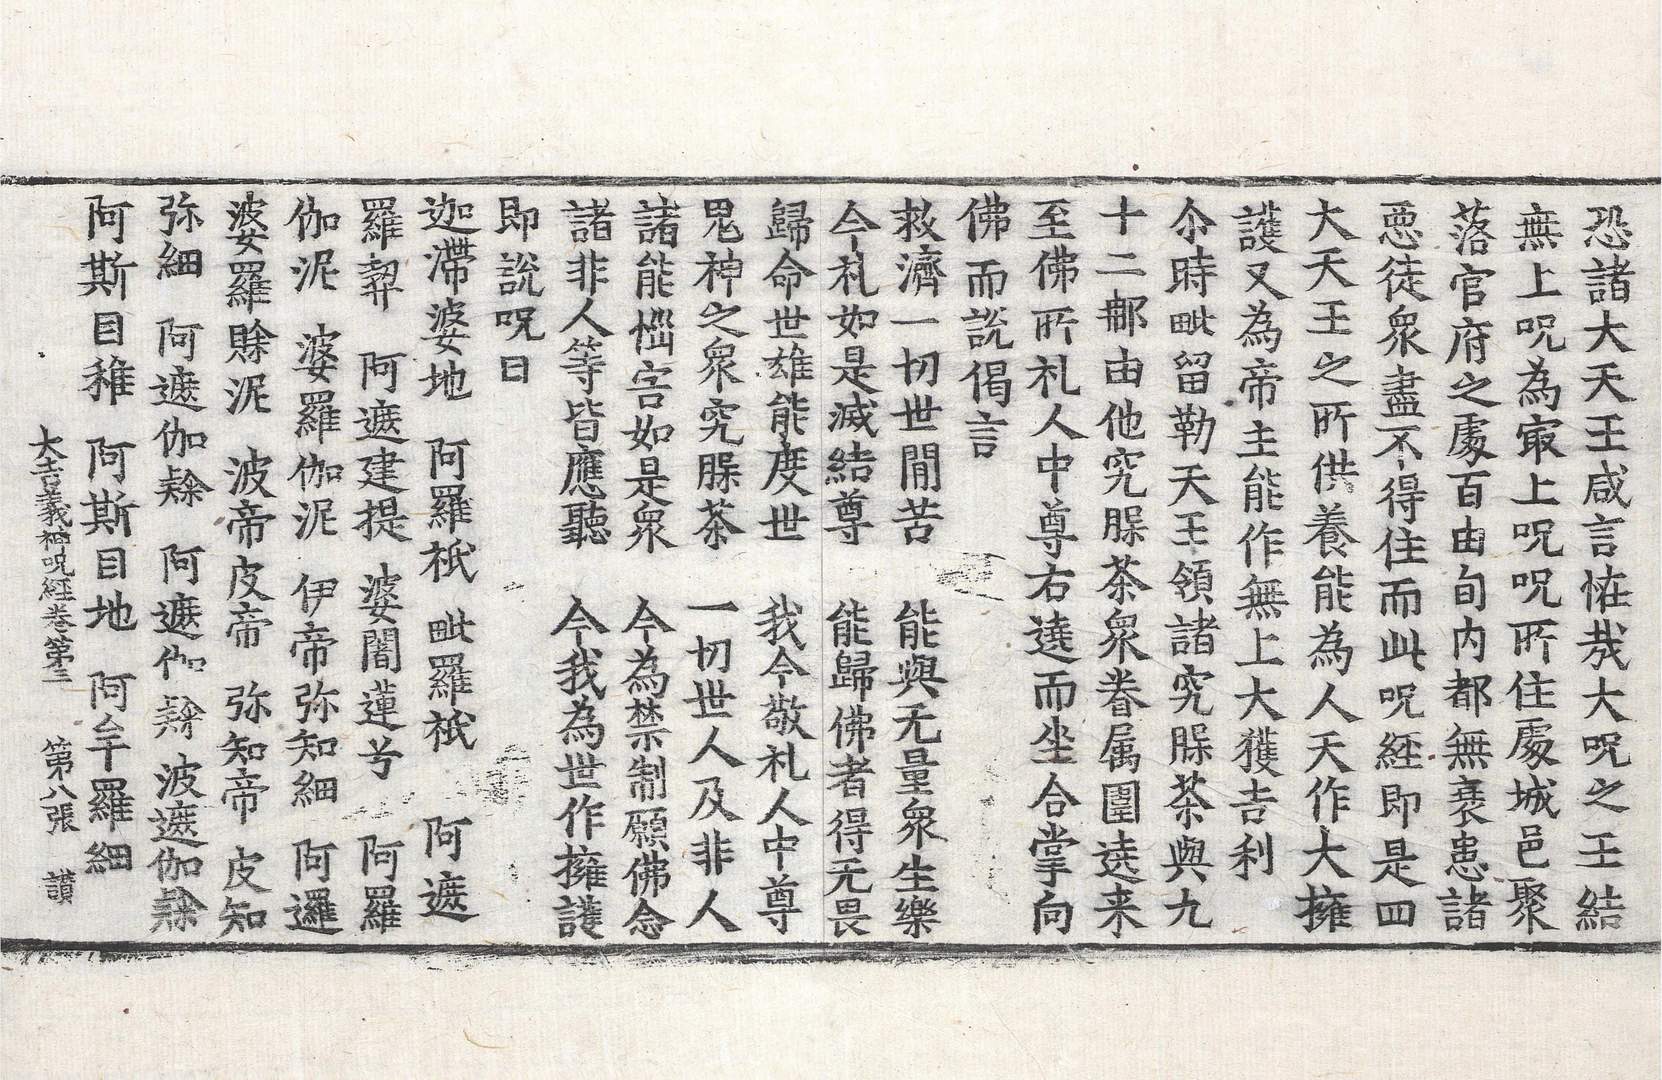 恐諸大天王咸言恠㢤大呪之王結
無上呪為㝡上呪呪所住處城邑聚
落官府之處百由旬内都無衰患諸
惡徒衆盡不得住而此呪經即是四
大天王之所供養能為人天作大擁
護又為帝主能作無上大獲吉利
尒時毗留勒天王領諸究脲茶與九
十二那由他究脲茶衆眷属圍遶来
至佛所礼人中尊右遶而坐合掌向
佛而說偈言
救濟一切世閒苦 能與无量衆生樂
今礼如是滅結尊 能歸佛者得无畏
歸命世雄能度世 我今敬礼人中尊
鬼神之衆究脲茶 一切世人及非人
諸能惱害如是衆 今為禁制願佛念
諸非人等皆應聽 今我為世作擁護
即說呪曰
迦滯婆地 阿羅祇 毗羅祇 阿遮
羅㝹 阿遮建提 婆闍蓮兮 阿羅
伽泥 婆羅伽泥 伊帝弥知細 阿邏
婆羅賖泥 波帝皮帝 弥知帝 皮知
弥細 阿遮伽㷿 阿遮伽㷿波遮伽㷿
阿斯目稚 阿斯目地 阿牟羅細
大吉義神呪經卷第三 第八張 讃